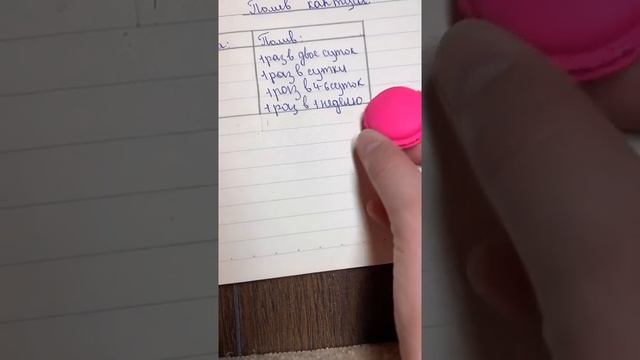 Полив кактуса
а: Полив:
1 раз в двое суток
1 раз в сутки
1 раз в 4-6 суток
1 раз в 1 неделю